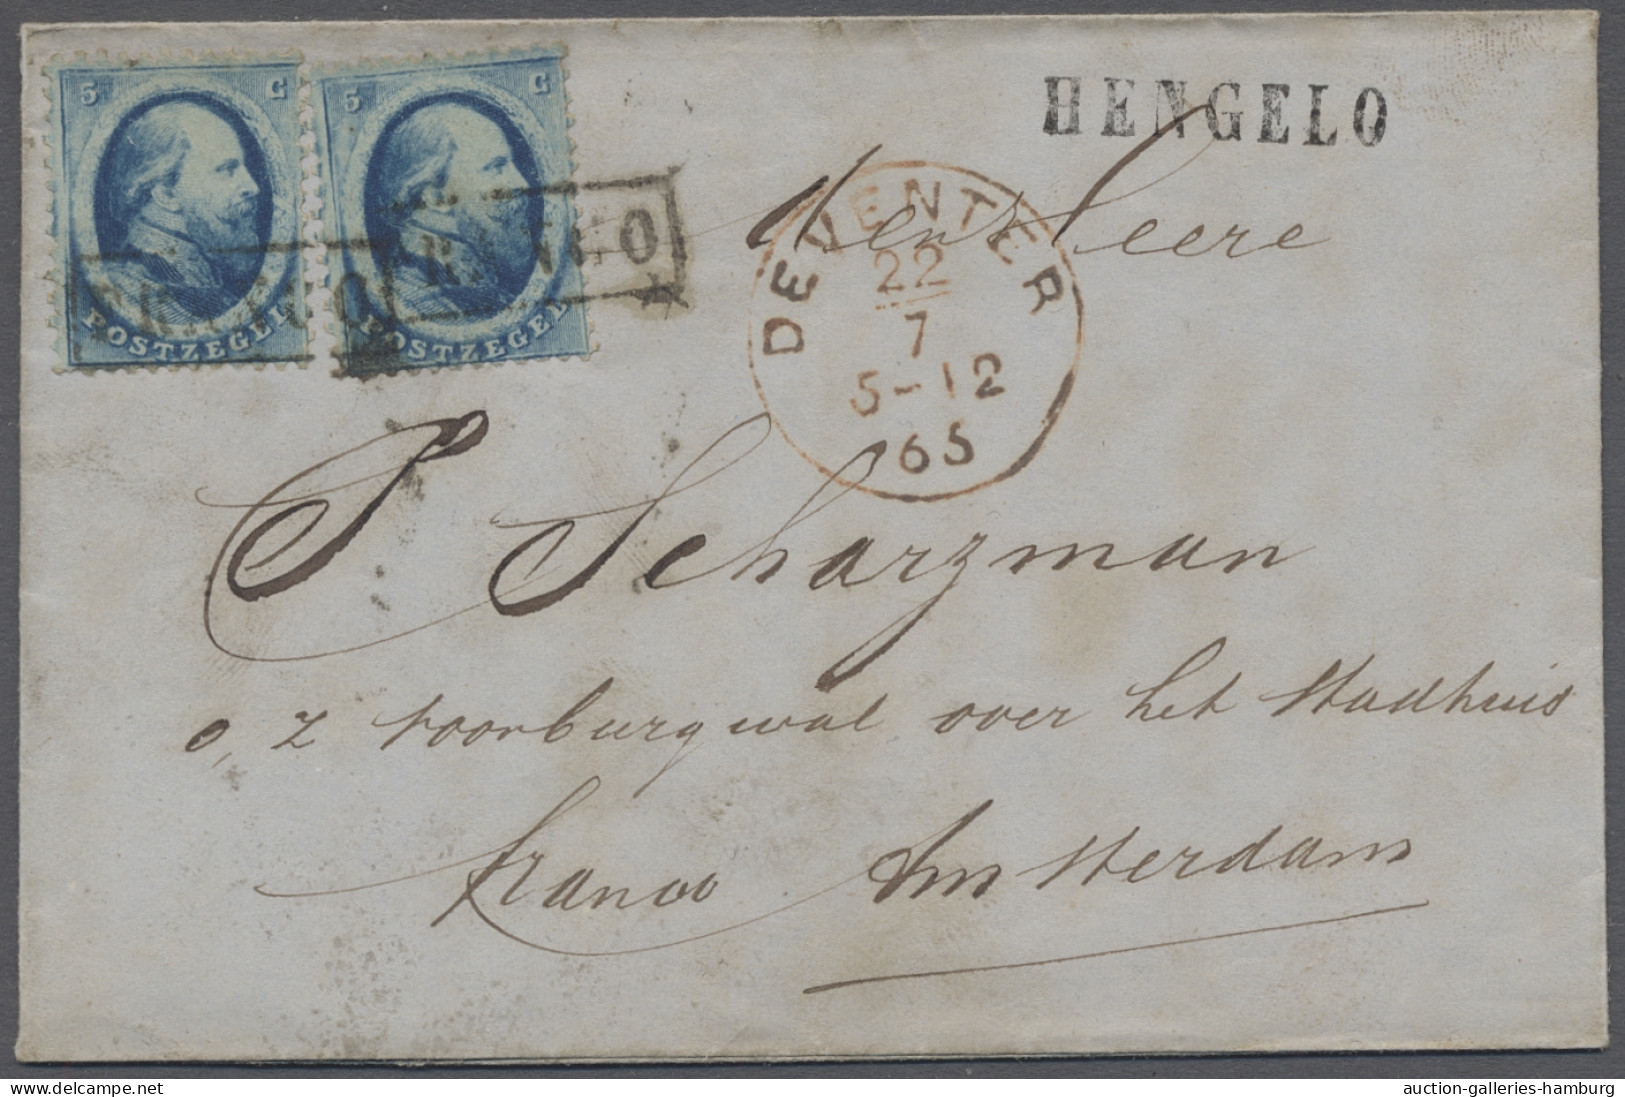 5 C
POSTZEGEL
FRANCO
5 C
POSTZEGEL
FRANCO
HENGELO
DEVENTER
22
7
5-12
65
Den Heere
P Scharzman
o, z voorburgwal over het Stadhuis
franco Amsterdam
delcampe.net
auction-galleries-hamburg